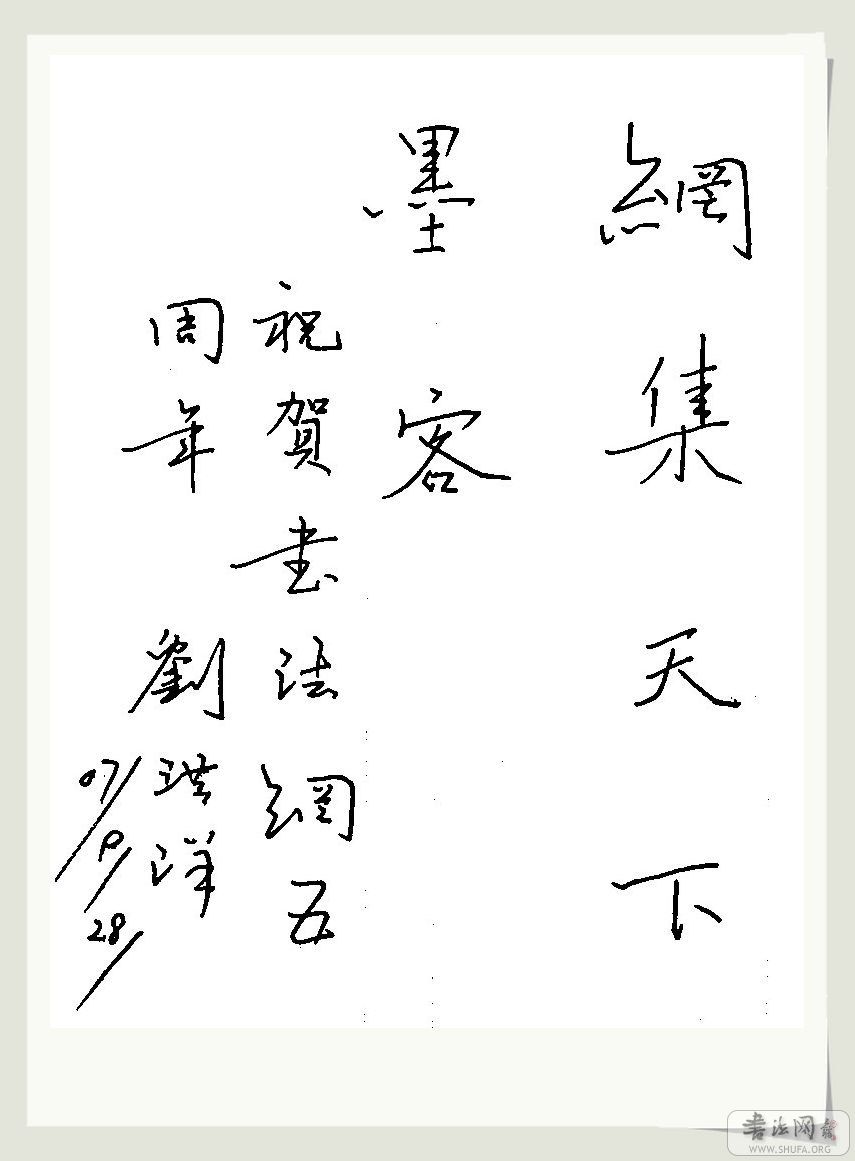 網集天下
墨客
祝賀书法網五
周年 劉洪洋
07/9/28/
书法网
WWW.SHUFA.ORG